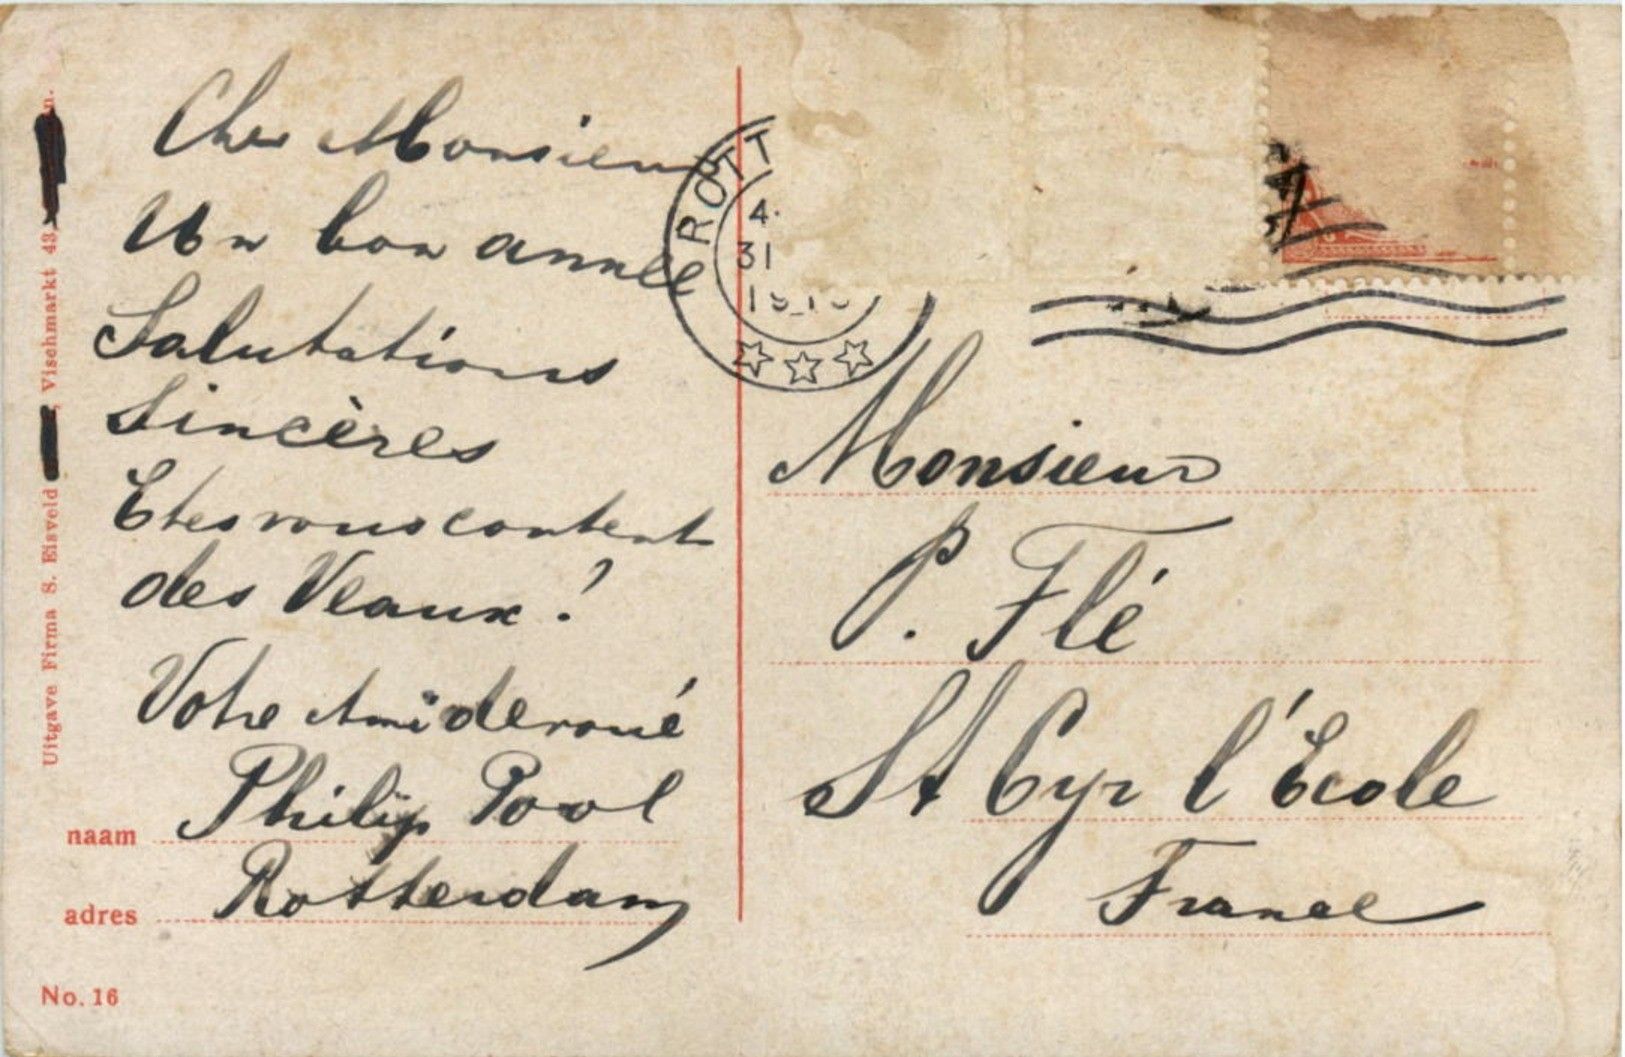 Cher Monsieur
Un bon année
Salutations
Sincères
Etes vous content
des Veaux?
Votre Ami devoué
Philip Pool
Rotterdam
naam
adres
No. 16
Uitgave Firma S. Eisveld , Vischmarkt 43
ROTT
4.
31
Monsieur
P. Flé
St Cyr l'École
France